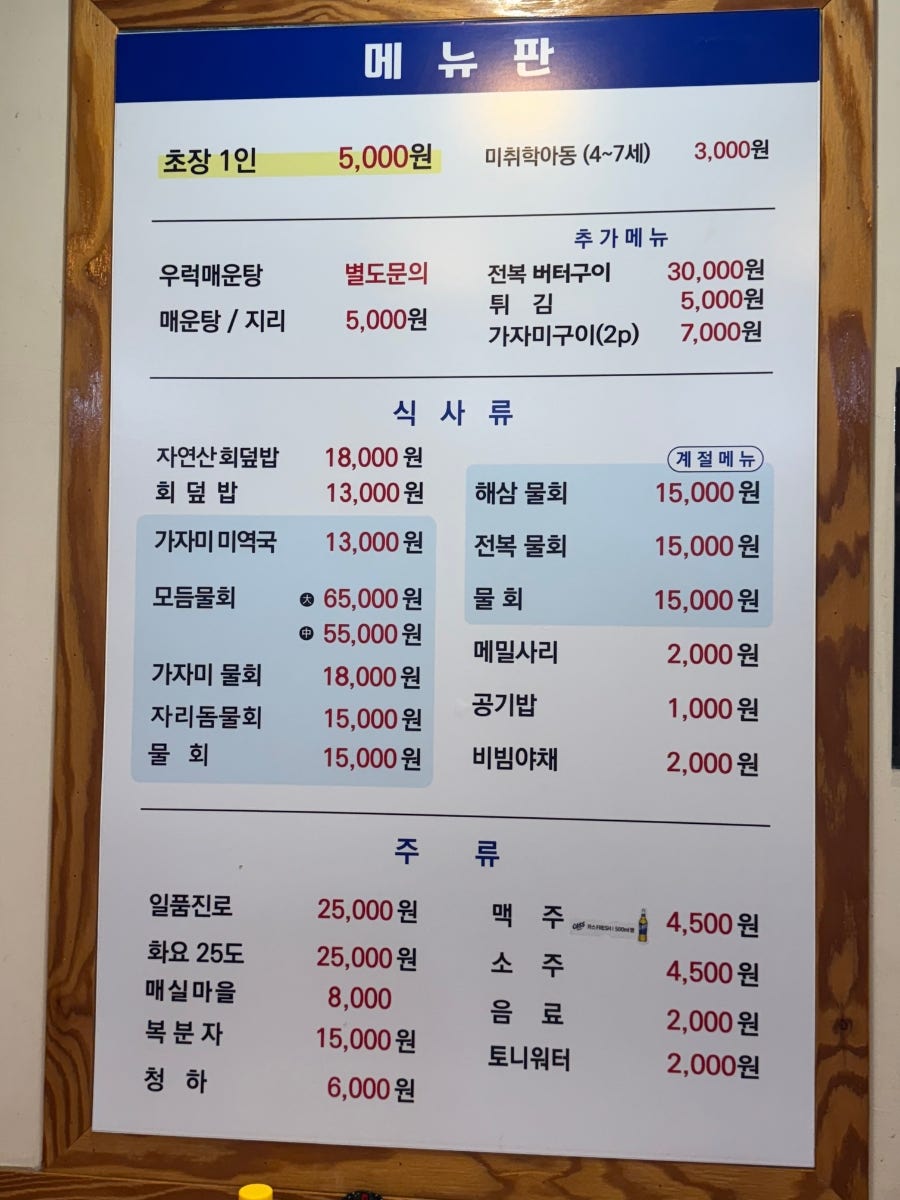 메뉴판
초장 1인 5,000원
미취학아동 (4~7세) 3,000원
우럭매운탕 별도문의
매운탕 / 지리 5,000원
추가메뉴
전복 버터구이 30,000원
튀 김 5,000원
가자미구이(2p) 7,000원
식 사 류
자연산회덮밥 18,000원
회 덮 밥 13,000원
가자미 미역국 13,000원
모듬물회 大 65,000원
中 55,000원
가자미 물회 18,000원
자리돔물회 15,000원
물 회 15,000원
계절메뉴
해삼 물회 15,000원
전복 물회 15,000원
물 회 15,000원
메밀사리 2,000원
공기밥 1,000원
비빔야채 2,000원
주 류
일품진로 25,000원
화요 25도 25,000원
매실마을 8,000
복분자 15,000원
청 하 6,000원
맥 주 Cass 카스FRESH | 500ml병 4,500원
소 주 4,500원
음 료 2,000원
토니워터 2,000원